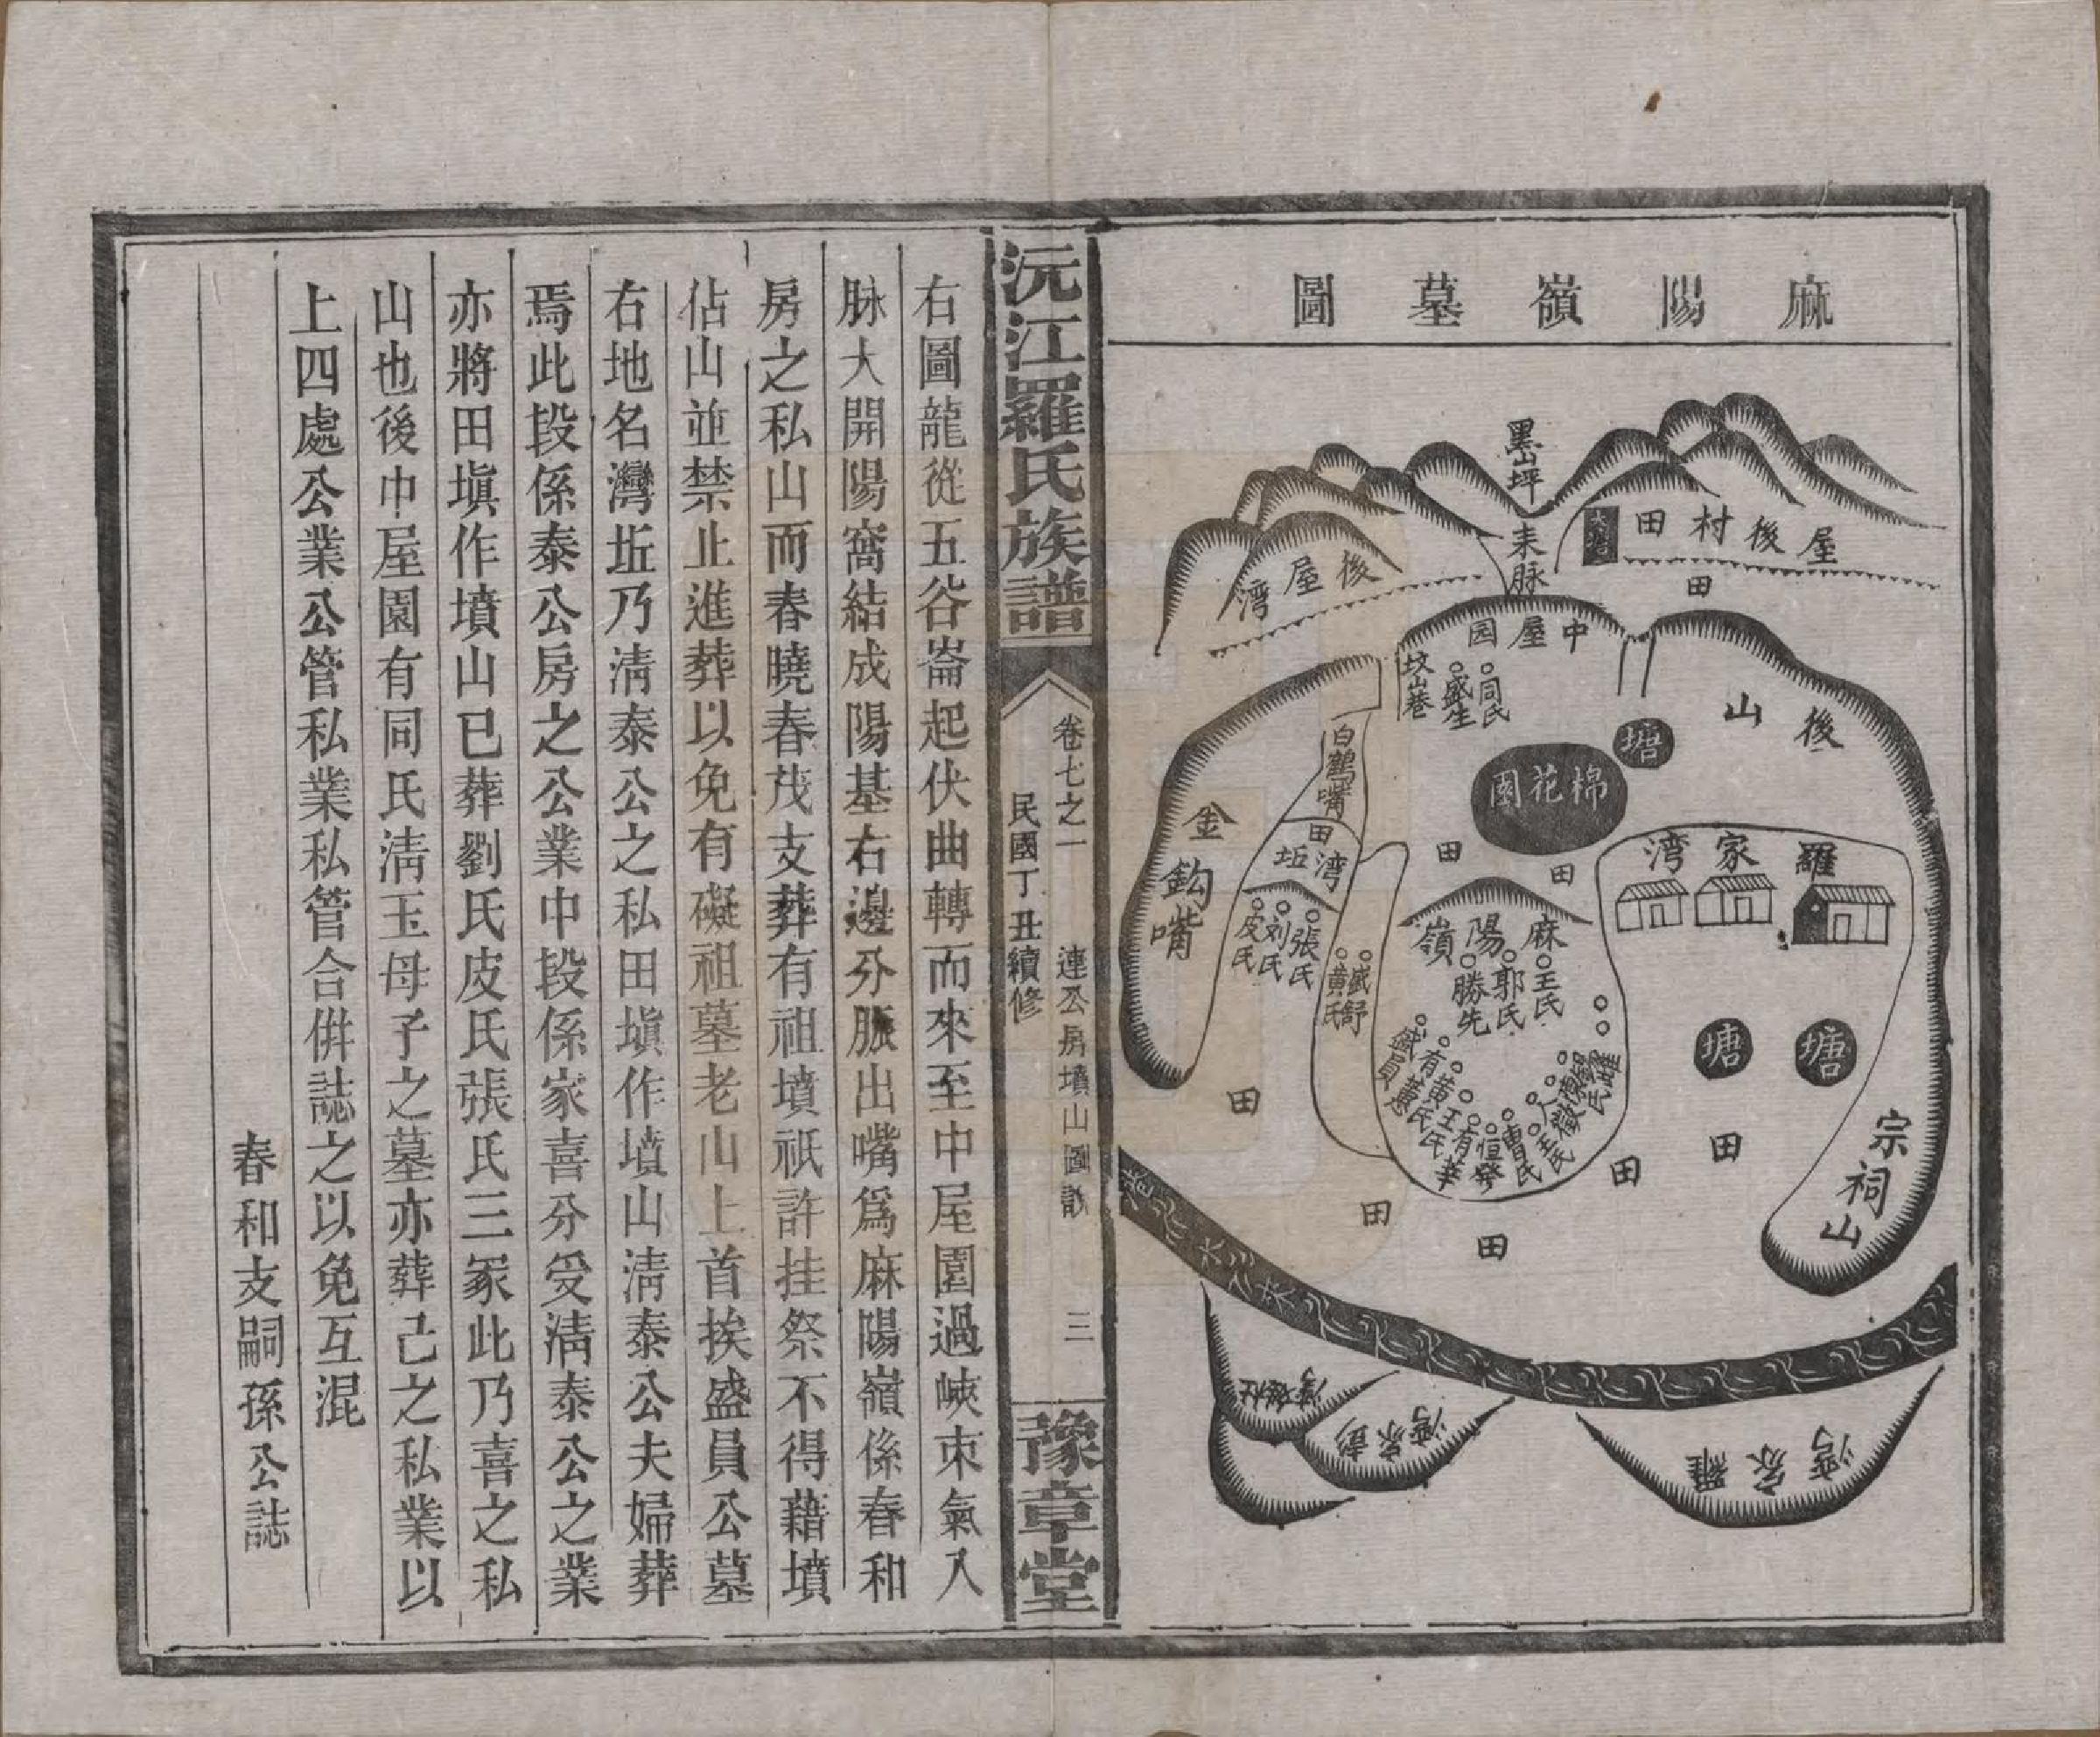 麻陽嶺墓圖
黑山坪
来脉
屋後村田
田
後屋湾
中屋园
坟山巷
盛生
同氏
後山
塘
棉花園
白鶴嘴
田
湾坵
金鈎嘴
田
田
羅家湾
張氏
刘氏
皮氏
麻陽嶺
王氏
郭氏
勝先
盛舒
黄氏
盛員
有蕙
黄氏
王氏
有華
恒發
曹氏
王氏
塘
塘
宗祠山
田
田
田
田
田
羅家湾
彭家湾
沅江羅氏族譜
卷七之一
連公房墳山圖說
三
民國丁丑續修
豫章堂
右圖龍從五谷崙起伏曲轉而來至中屋園過峽束氣入
脉大開陽窩結成陽基右邊分脈出嘴爲麻陽嶺係春和
房之私山而春曉春茂支葬有祖墳祇許挂祭不得藉墳
佔山並禁止進葬以免有礙祖墓老山上首挨盛員公墓
右地名灣坵乃淸泰公之私田塡作墳山淸泰公夫婦葬
焉此段係泰公房之公業中段係家喜分受淸泰公之業
亦將田塡作墳山已葬劉氏皮氏張氏三冢此乃喜之私
山也後中屋園有同氏淸玉母子之墓亦葬己之私業以
上四處公業公管私業私管合併誌之以免互混
春和支嗣孫公誌